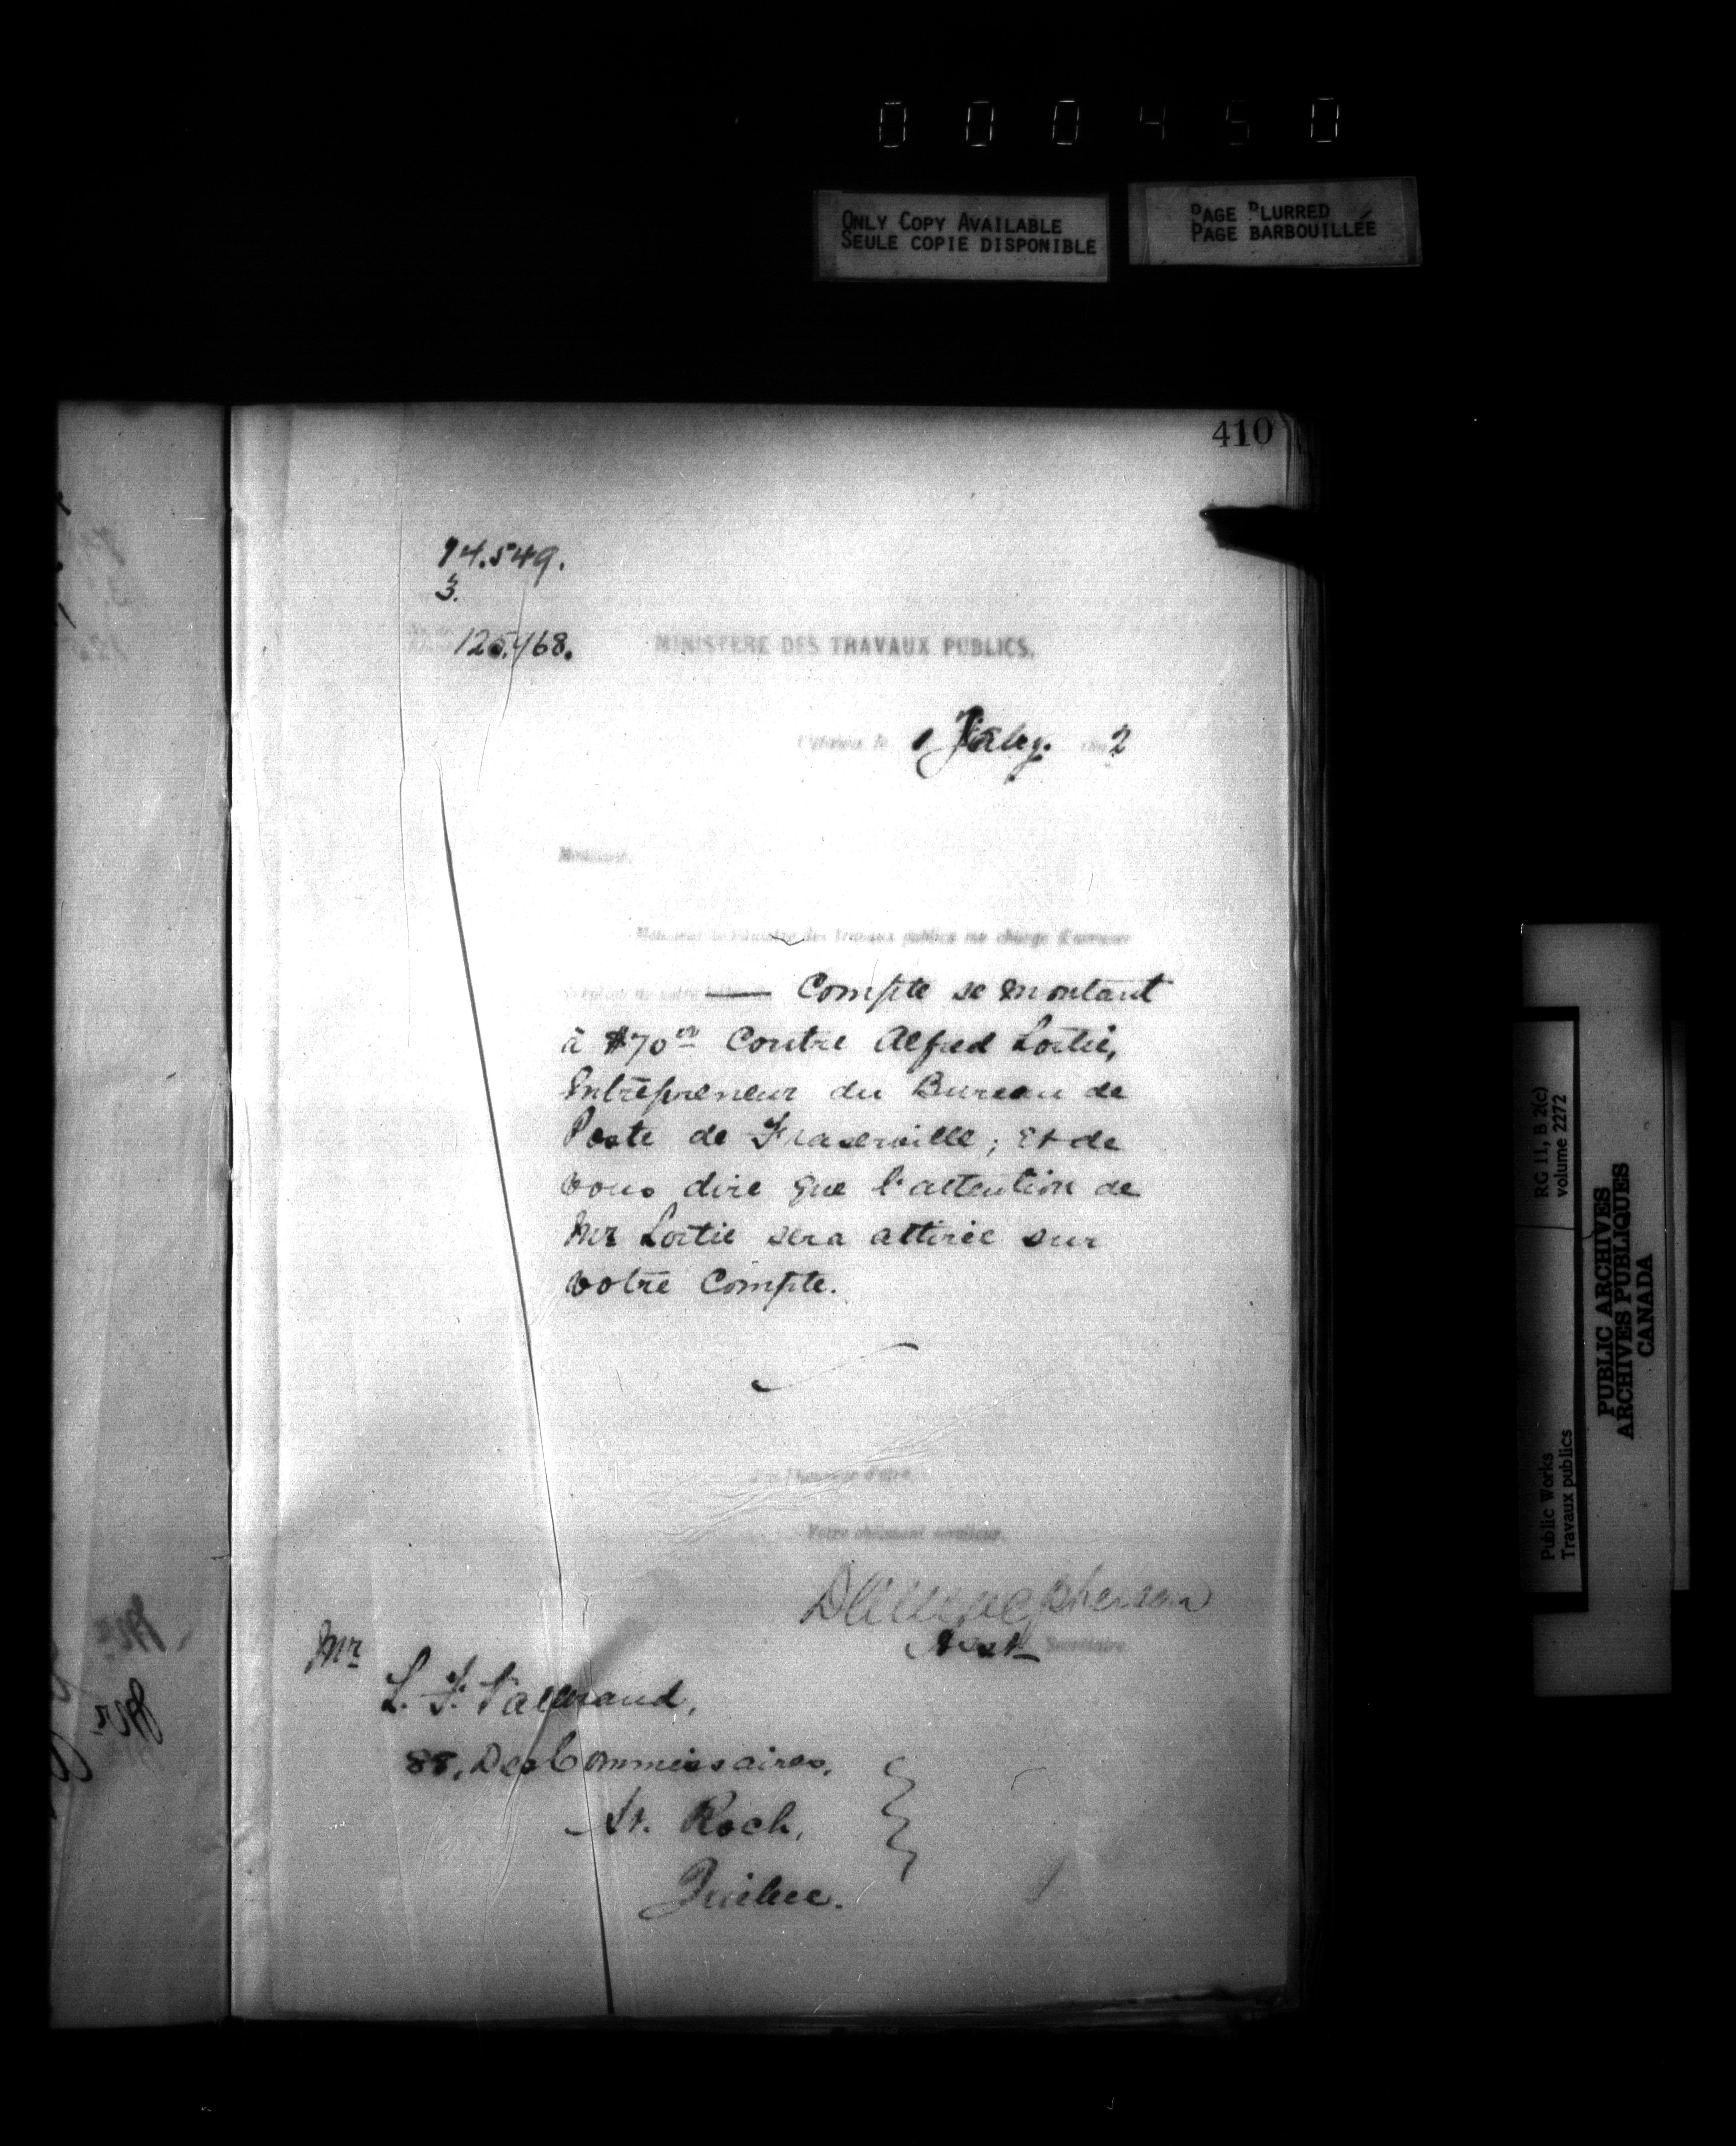 000450
ONLY COPY AVAILABLE
SEULE COPIE DISPONIBLE
PAGE BLURRED
PAGE BARBOUILLÉE
410
14.549.
3.
125,468.
MINISTÈRE DES TRAVAUX PUBLICS.
Ottawa le 1 189 2
Monsieur,
Monsieur le Ministre des travaux publics me charge d'accuser
réception de votre Compte se montant
à $70 00 Contre Alfred Lortie,
Entrepreneur du Bureau de
Poste de Fraserville; et de
vous dire que l'attention de
Mr Lortie sera attirée sur
votre Compte.
J'ai l'honneur d'être,
Votre obéissant serviteur,
Asst Secrétaire
Mr
L. F. Vallerand,
88, Des Commissaires,
St. Roch,
Québec.
Public Works
Travaux publics
RG 11, B 2(c)
volume 2272
PUBLIC ARCHIVES
ARCHIVES PUBLIQUES
CANADA